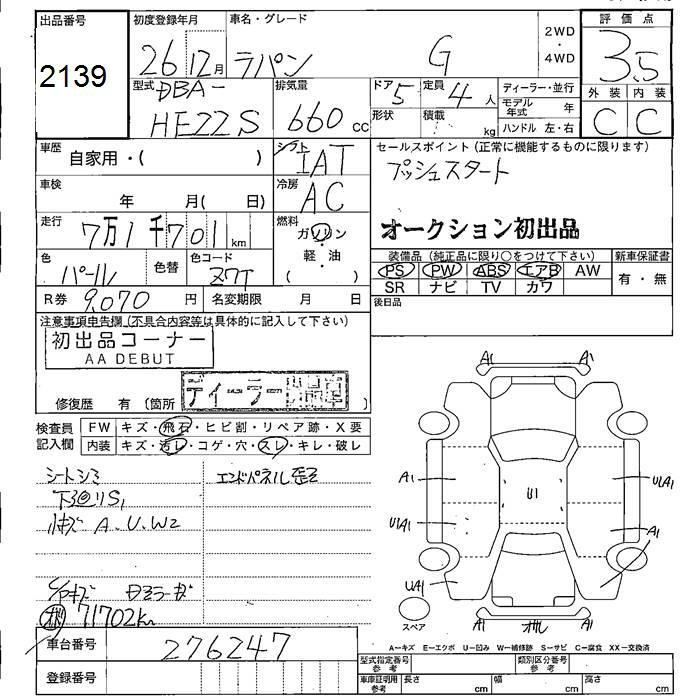 出品番号
2139
初度登録年月
26 12月
車名・グレード
ラパン G
2WD
・
4WD
評価点
3.5
外装 内装
C C
型式
DBA-
HE22S
排気量
660 cc
ドア 5
定員 4 人
形状
積載 kg
ディーラー・並行
モデル年式 年
ハンドル 左・右
車歴
自家用・( )
シフト
IAT
セールスポイント (正常に機能するものに限ります)
プッシュスタート
オークション初出品
車検
年 月( 日)
冷房
AC
走行
7万1千701 km
燃料
ガソリン
・
軽・油
( )
装備品 (純正品に限り○をつけて下さい)
PS PW ABS エアB AW
SR ナビ TV カワ
新車保証書
有・無
色
パール
色替
色コード
Z7T
R券 9,070 円
名変期限 月 日
後日品
注意事項申告欄 (不具合内容等は具体的に記入して下さい)
初出品コーナー
AA DEBUT
ディーラー
修復歴 有 (箇所 )
検査員
記入欄
FW キズ・飛石・ヒビ割・リペア跡・X要
内装 キズ・汚レ・コゲ・穴・スレ・キレ・破レ
シートシミ
エンドパネル歪
下廻りS1
小キズ A.U.W2
71702km
A1 A1
A1
U1
UA1
A1
UA1
A1
A1
スペア
A-キズ E-エクボ U-凹み W-補修跡 S-サビ C-腐食 XX-交換済
車台番号
276247
登録番号
型式指定番号
参考
類別区分番号
参考
車庫証明用
参考
長さ cm
幅 cm
高さ cm